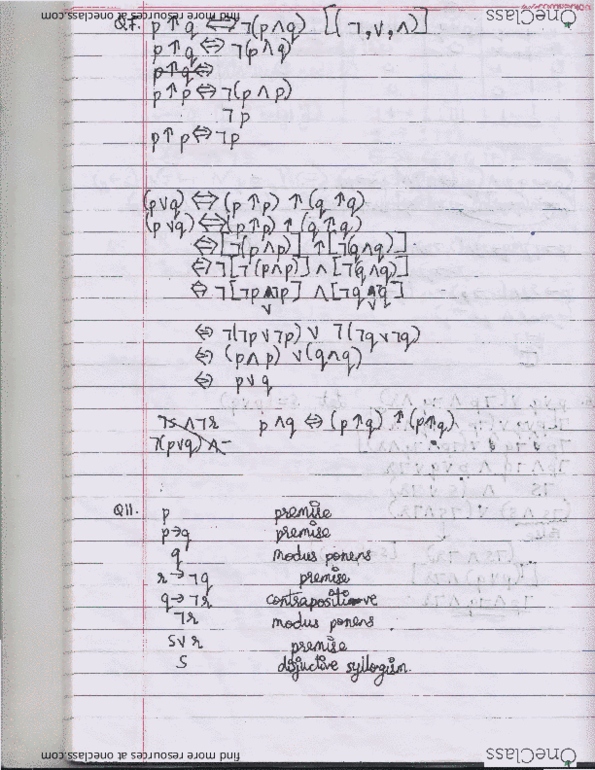 find more resources at oneclass.com
OneClass
Q7. p↑q ⇔ ¬(p∧q) [(¬,∨,∧)]
p↑q ⇔ ¬(p∧q)
p↑q ⇔
p↑p ⇔ ¬(p∧p)
¬p
p↑p ⇔ ¬p
(p∨q) ⇔ (p↑p) ↑ (q↑q)
(p∨q) ⇔ (p↑p) ↑ (q↑q)
⇔ [¬(p∧p)] ↑ [¬(q∧q)]
⇔ ¬[¬(p∧p)] ∧ [¬(q∧q)]
⇔ ¬[¬p∨¬p] ∧ [¬q∨¬q]
⇔ ¬(¬p∨¬p) ∨ ¬(¬q∨¬q)
⇔ (p∧p) ∨ (q∧q)
⇔ p∨q
¬s∧¬r p∧q ⇔ (p↑q) ↑ (p↑q)
¬(p∨q) ∧ ¬
Q11. p premise
p→q premise
q modus ponens
r→¬q premise
q→¬r contrapositive
¬r modus ponens
s∨r premise
s disjuctive syllogism.
find more resources at oneclass.com
OneClass